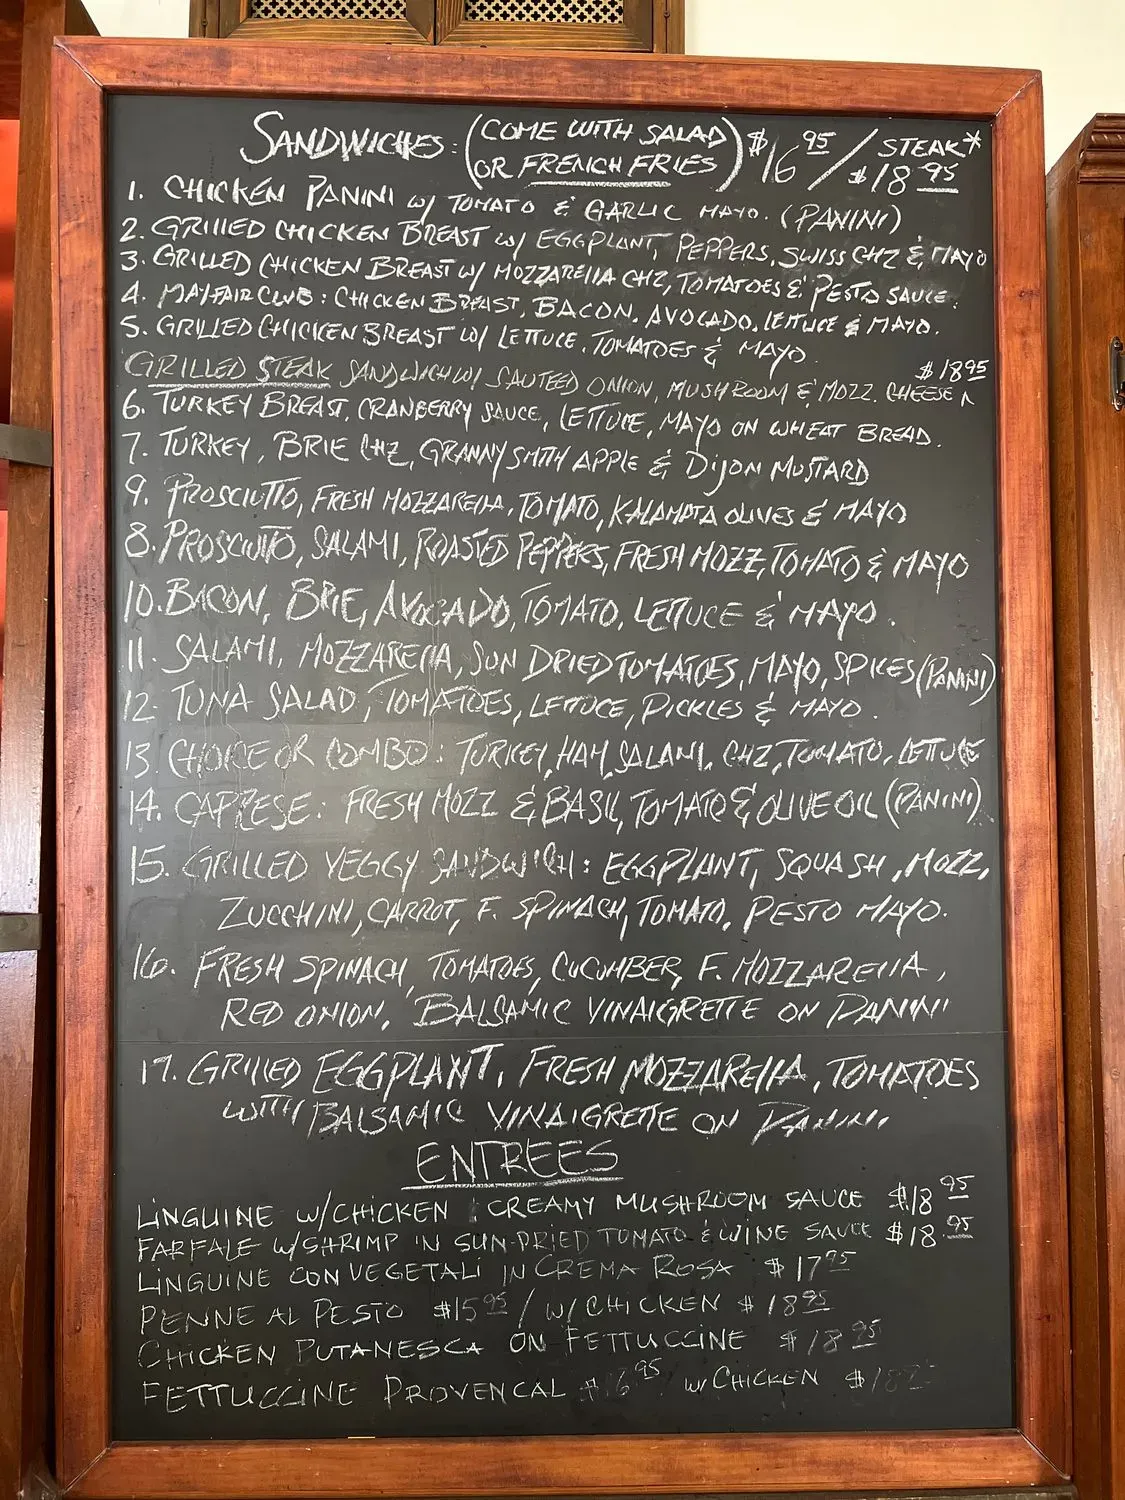 SANDWICHES: (COME WITH SALAD OR FRENCH FRIES) $16 95 / STEAK* $18 95
1. CHICKEN PANINI W/ TOMATO & GARLIC MAYO. (PANINI)
2. GRILLED CHICKEN BREAST W/ EGGPLANT, PEPPERS, SWISS CHZ & MAYO
3. GRILLED CHICKEN BREAST W/ MOZZARELLA CHZ, TOMATOES & PESTO SAUCE.
4. MAYFAIR CLUB: CHICKEN BREAST, BACON, AVOCADO, LETTUCE & MAYO.
5. GRILLED CHICKEN BREAST W/ LETTUCE, TOMATOES & MAYO.
GRILLED STEAK SANDWICH W/ SAUTEED ONION, MUSHROOM & MOZZ. CHEESE $18 95
6. TURKEY BREAST, CRANBERRY SAUCE, LETTUCE, MAYO ON WHEAT BREAD.
7. TURKEY, BRIE CHZ, GRANNY SMITH APPLE & DIJON MUSTARD
9. PROSCIUTTO, FRESH MOZZARELLA, TOMATO, KALAMATA OLIVES & MAYO
8. PROSCIUTTO, SALAMI, ROASTED PEPPERS, FRESH MOZZ, TOMATO & MAYO
10. BACON, BRIE, AVOCADO, TOMATO, LETTUCE & MAYO.
11. SALAMI, MOZZARELLA, SUN DRIED TOMATOES, MAYO, SPICES (PANINI)
12. TUNA SALAD, TOMATOES, LETTUCE, PICKLES & MAYO.
13. CHOICE OR COMBO: TURKEY, HAM, SALAMI, CHZ, TOMATO, LETTUCE
14. CAPRESE: FRESH MOZZ & BASIL, TOMATO & OLIVE OIL (PANINI)
15. GRILLED VEGGY SANDWICH: EGGPLANT, SQUASH, MOZZ,
ZUCCHINI, CARROT, F. SPINACH, TOMATO, PESTO MAYO.
16. FRESH SPINACH, TOMATOES, CUCUMBER, F. MOZZARELLA,
RED ONION, BALSAMIC VINAIGRETTE ON PANINI
17. GRILLED EGGPLANT, FRESH MOZZARELLA, TOMATOES
WITH BALSAMIC VINAIGRETTE ON PANINI
ENTREES
LINGUINE W/CHICKEN : CREAMY MUSHROOM SAUCE $18 95
FARFALE W/SHRIMP 'N SUN-DRIED TOMATO & WINE SAUCE $18 95
LINGUINE CON VEGETALI IN CREMA ROSA $17 95
PENNE AL PESTO $15 95 / W/CHICKEN $18 95
CHICKEN PUTANESCA ON FETTUCCINE $18 95
FETTUCCINE PROVENCAL $16 95 W/CHICKEN